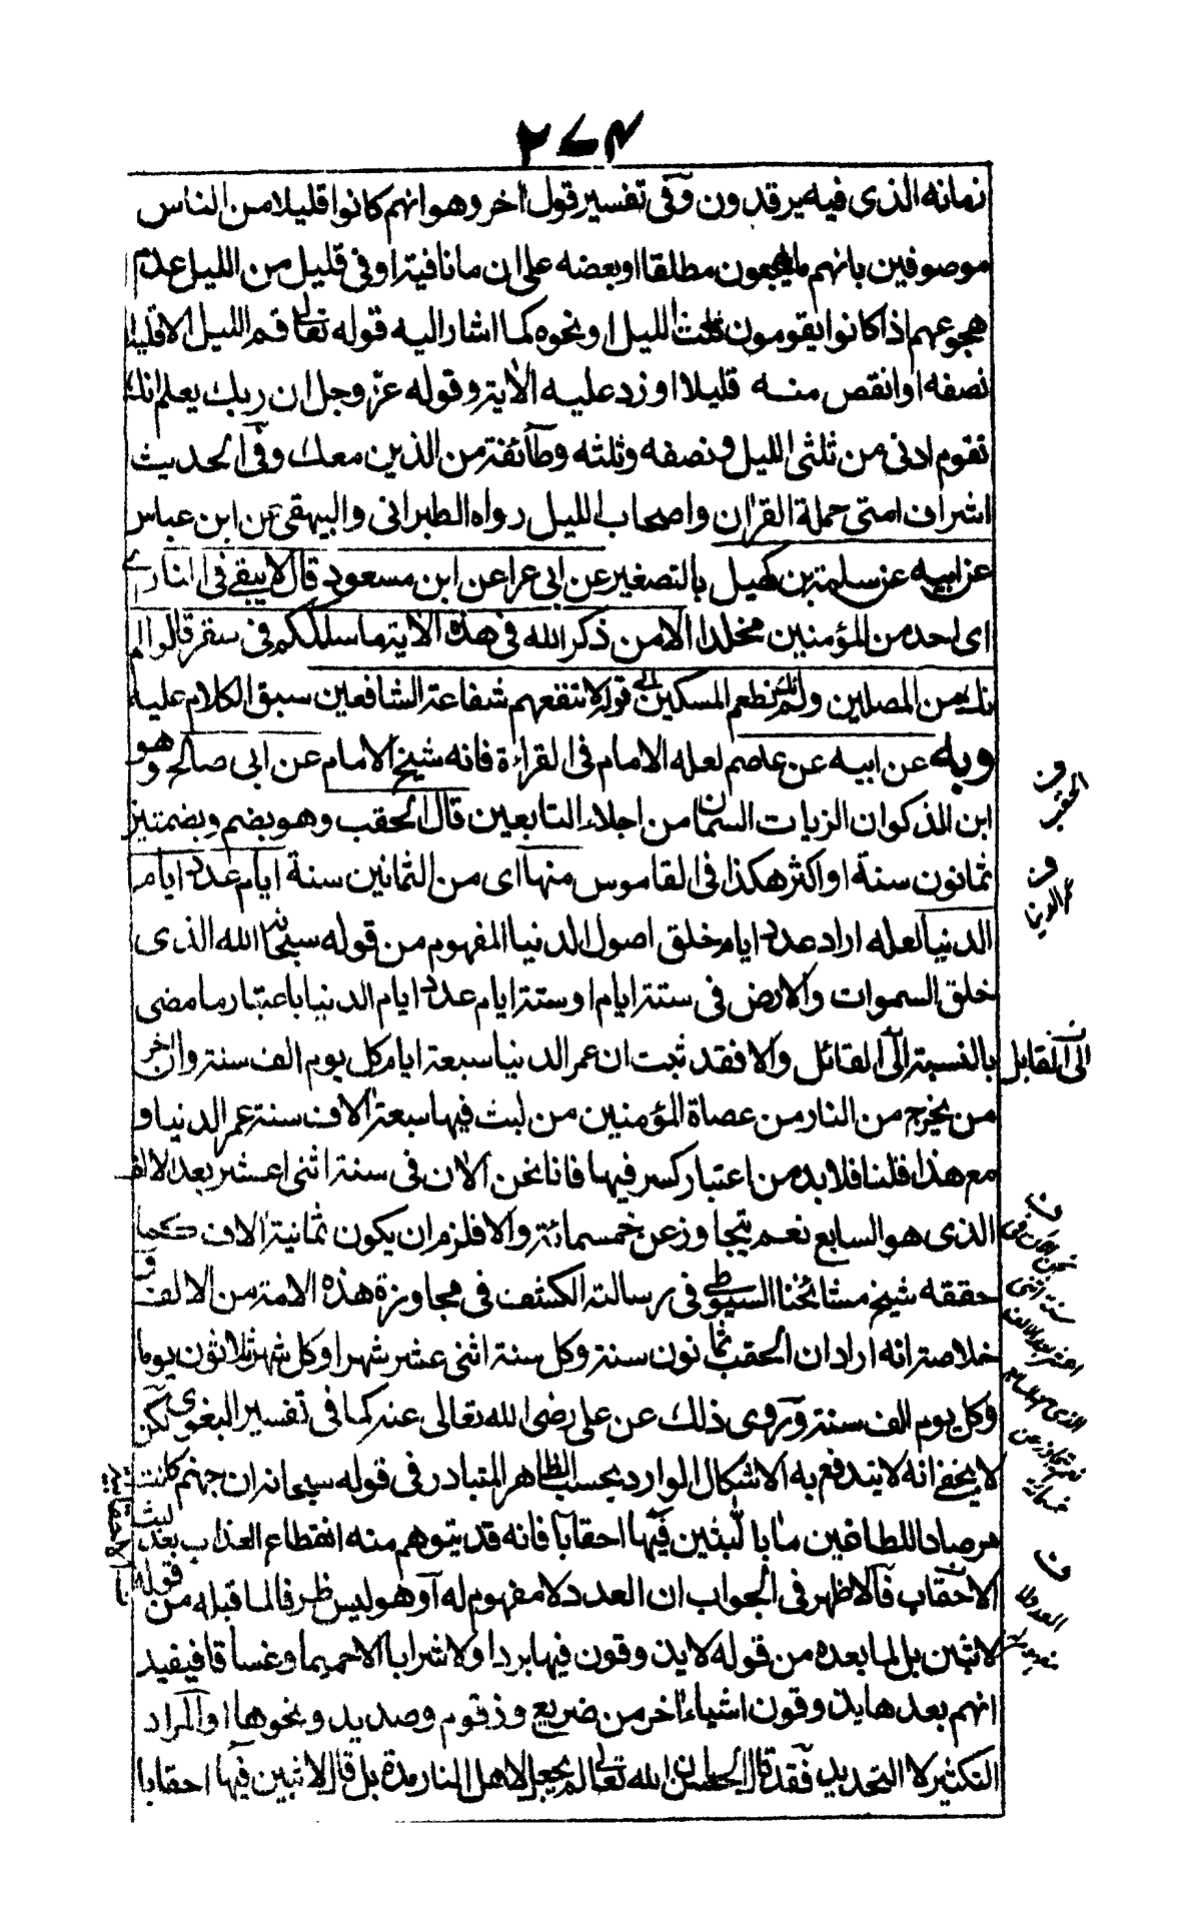 ٢٧٤
زمانه الذى فيه يرقدون وفى تفسير قول اخر وهو انهم كانوا قليلا من الناس
موصوفين بانهم ما يهجعون مطلقا او بعضه على ان ما نافية او فى قليل من الليل عدم
هجوعهم اذا كانوا يقومون ثلث الليل او نحوه كما اشار اليه قوله تعالى قم الليل الا قليلا
نصفه او انقص منه قليلا او زد عليه الاية وقوله عز وجل ان ربك يعلم انك
تقوم ادنى من ثلثى الليل ونصفه وثلثه وطائفة من الذين معك وفى الحديث
اشراف امتى حملة القران واصحاب الليل رواه الطبرانى والبيهقى عن ابن عباس
عن ابيه عن سلمة بن كهيل بالتصغير عن ابى عرا عن ابن مسعود قال لا يبقى فى النار
اى احد من المؤمنين مخلدا الا من ذكر الله فى هذه الاية ما سلككم فى سقر قالوا لم
نك من المصلين ولم نك نطعم المسكين الى قوله لا تنفعهم شفاعة الشافعين سبق الكلام عليه
وبه عن ابيه عن عاصم لعله الامام فى القراءة فانه شيخ الامام عن ابى صالح وهو
ابن المذكوان الزيات السمان من اجلاء التابعين قال الحقب وهو بضم وبضمتين
ثمانون سنة او اكثر هكذا فى القاموس منها اى من الثمانين سنة ايام عدد ايام
الدنيا لعله اراد عدد ايام خلق اصول الدنيا المفهوم من قوله سبحانه الله الذى
خلق السموات والارض فى ستة ايام او ستة ايام عدد ايام الدنيا باعتبار ما مضى
بالنسبة الى القائل والا فقد ثبت ان عمر الدنيا سبعة ايام كل يوم الف سنة وان اخر
من يخرج من النار من عصاة المؤمنين من لبث فيها سبعة الاف سنة عمر الدنيا و
مع هذا فلنا فلا بد من اعتبار كسر فيها فانا نحن الان فى سنة اثنى اعشر بعد الالف
الذى هو السابع نعم يتجاوز عن خمسمائة والا فلزم ان يكون ثمانية الاف كما
حققه شيخ مشائخنا السيوطى فى رسالته الكشف فى مجاوزة هذه الامة من الالف و
خلاصته انه اراد ان الحقب ثمانون سنة وكل سنة اثنى عشر شهرا وكل شهر ثلاثون يوما
وكل يوم الف سنة وروى ذلك عن على رضى الله تعالى عنه كما فى تفسير البغوى لكن
لا يخفى انه لا يندفع به الاشكال الوارد بحسب الظاهر المتبادر فى قوله سبحانه ان جهنم كانت
مرصادا للطاغين مابا لبثين فيها احقابا فانه قد يتوهم منه انقطاع العذاب بعد لبث
الاحقاب فالاظهر فى الجواب ان العدد لا مفهوم له او هو ليس ظرفا لما قبله من قوله
لابثين بل لما بعده من قوله لا يذوقون فيها بردا ولا شرابا الا حميما وغساقا فيفيد
انهم بعدها يذوقون اشياء اخر من ضريع وزقوم وصديد ونحوها او المراد
التكثير لا التحديد فقد قال الحسن ان الله تعالى لم يجعل لاهل النار مدة بل قال لابثين فيها احقابا
الحقب
ف
عمر الدنيا
الى القابل
ف
نحن الان فى
سنة اثنى
عشر بعد الالف
الذى هو السابع
نعم يتجاوز عن
خمسمائة
ف
العدد لا